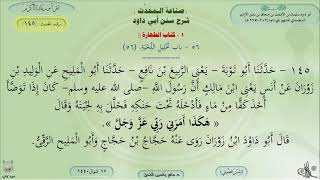 صناعة المحدث
شرح سنن أبي داود
١ - كتاب الطهارة
٥٦ - باب تخليل اللحية (٥٦)
١٤٥ - حَدَّثَنَا أَبُو تَوْبَةَ - يَعْنِى الرَّبِيعَ بْنَ نَافِعٍ - حَدَّثَنَا أَبُو الْمَلِيحِ عَنِ الْوَلِيدِ بْنِ
زَوْرَانَ عَنْ أَنَسٍ يَعْنِى ابْنَ مَالِكٍ أَنَّ رَسُولَ اللَّهِ - صلى الله عليه وسلم - كَانَ إِذَا تَوَضَّأَ
أَخَذَ كَفًّا مِنْ مَاءٍ فَأَدْخَلَهُ تَحْتَ حَنَكِهِ فَخَلَّلَ بِهِ لِحْيَتَهُ وَقَالَ
« هَكَذَا أَمَرَنِى رَبِّى عَزَّ وَجَلَّ ».
قَالَ أَبُو دَاوُدَ ابْنُ زَوْرَانَ رَوَى عَنْهُ حَجَّاجُ بْنُ حَجَّاجٍ وَأَبُو الْمَلِيحِ الرَّقِّىُّ.